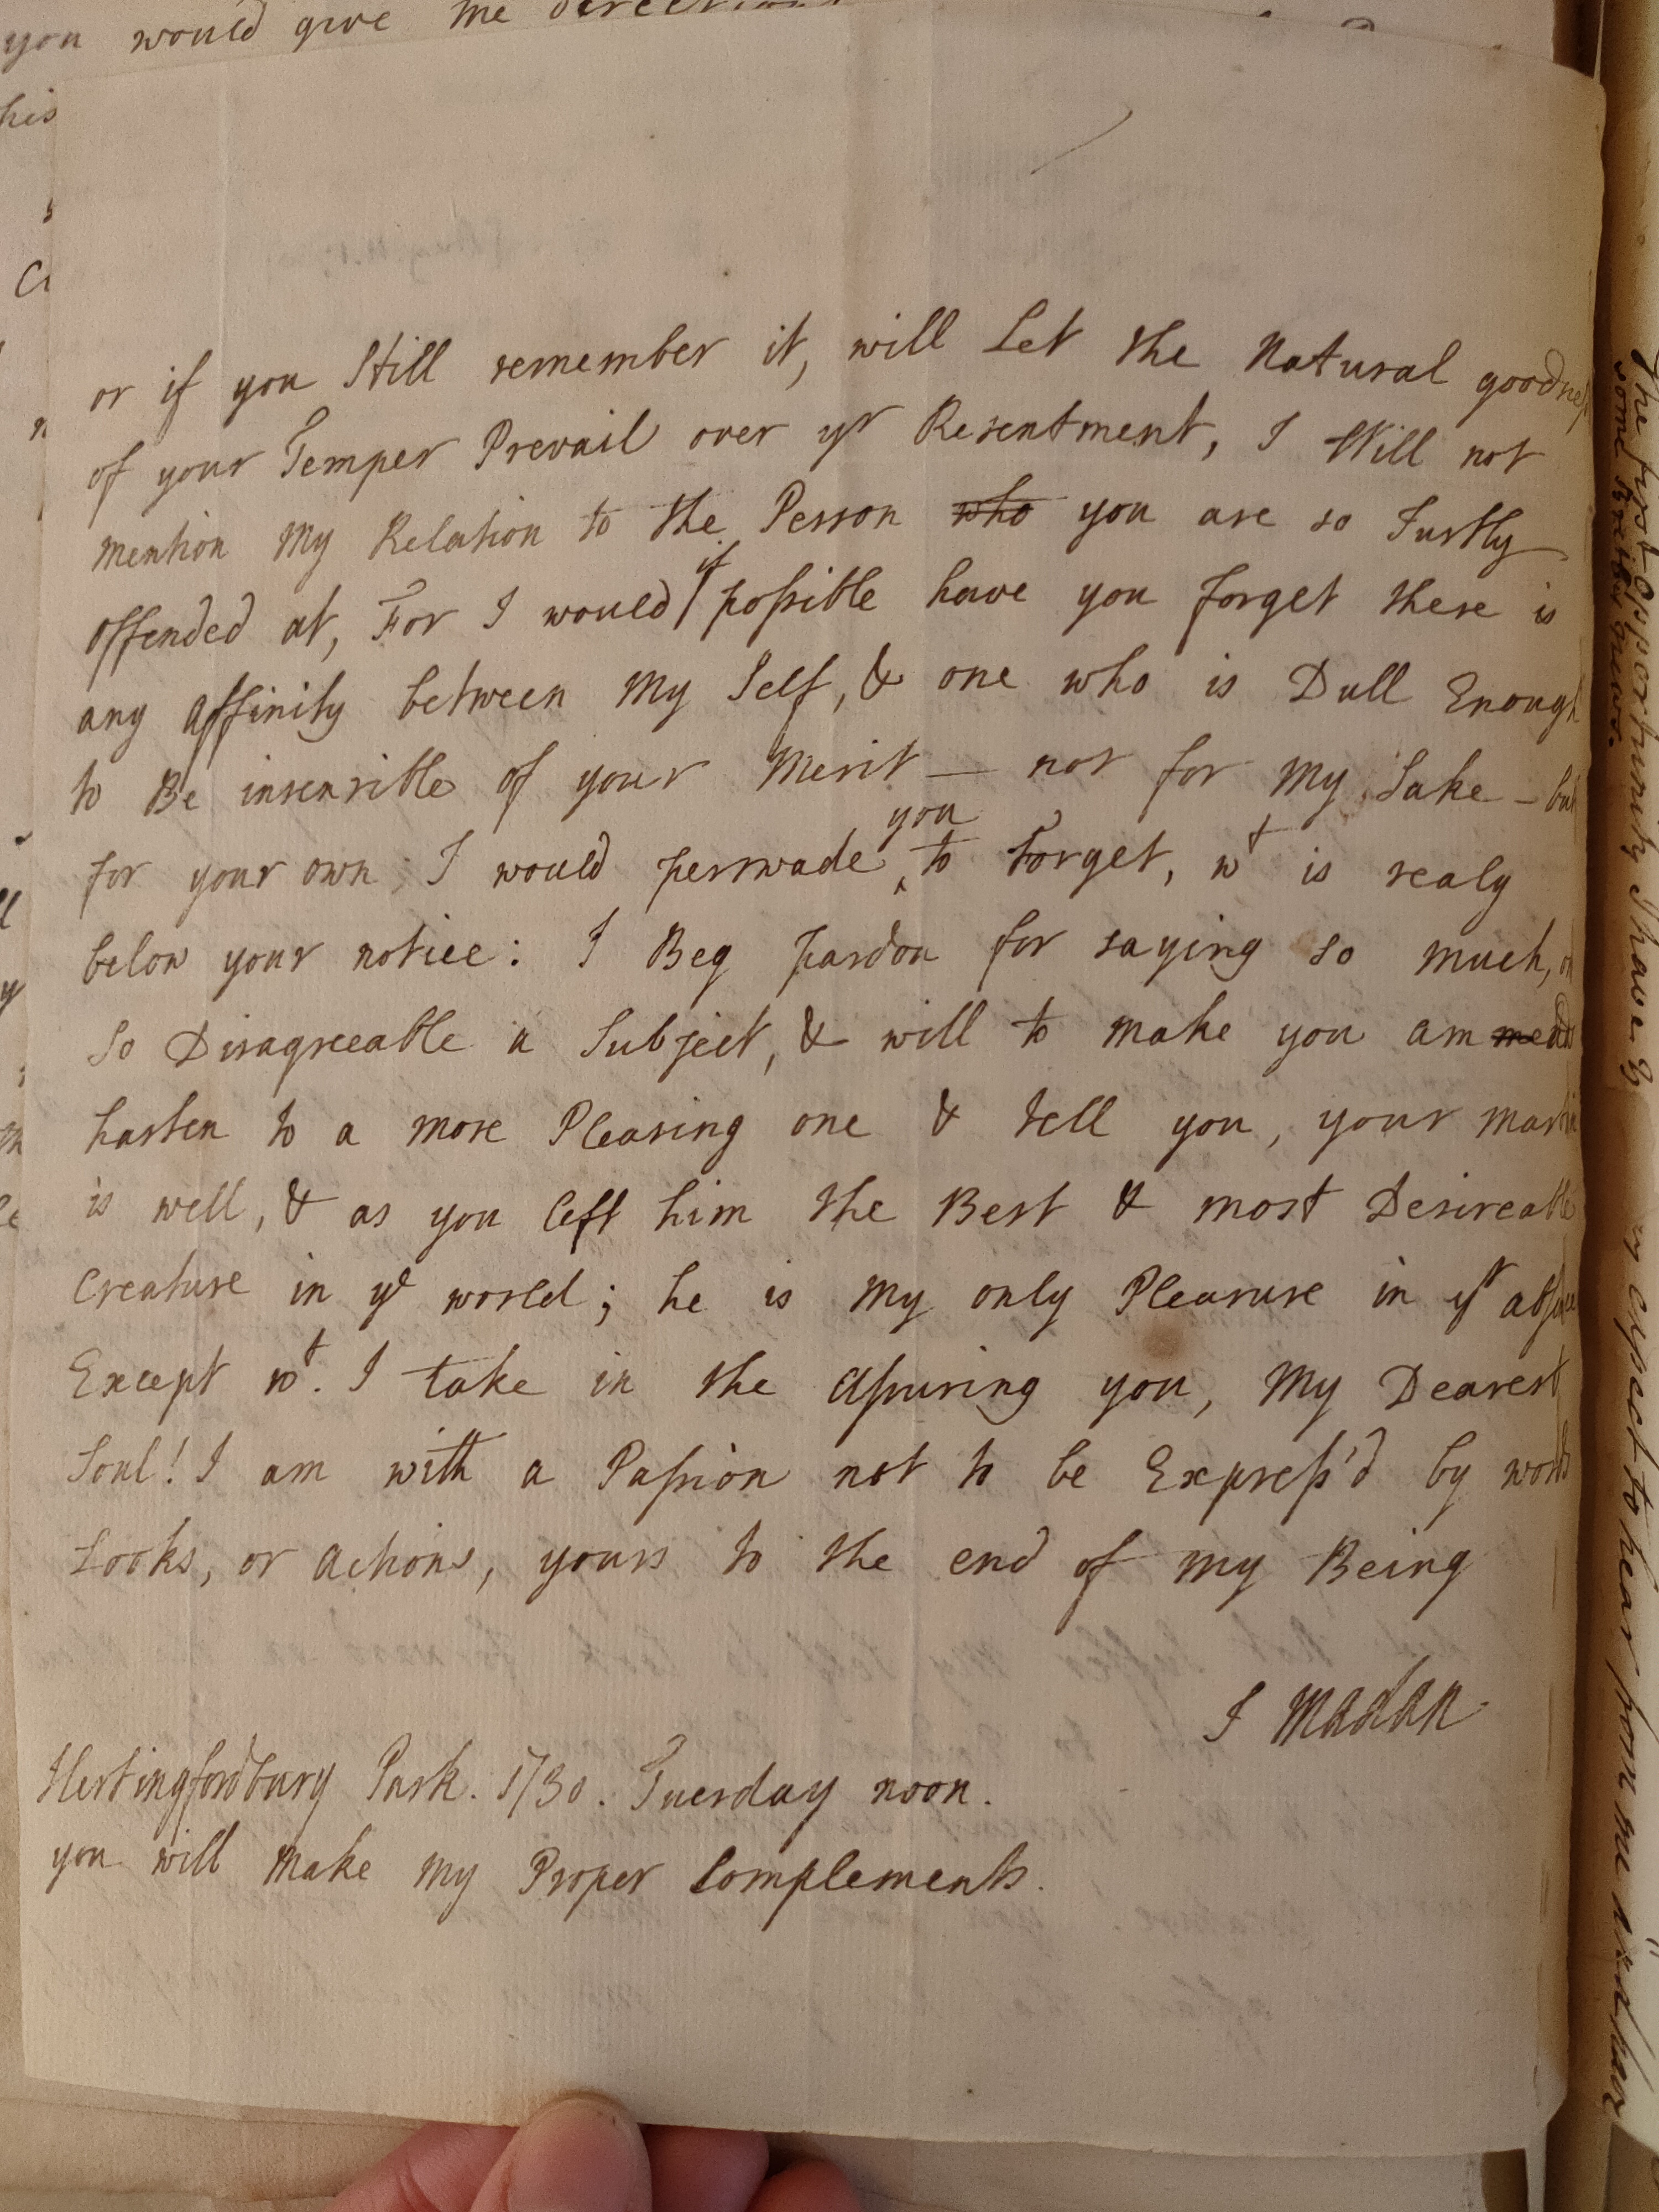 you would give me
his
or if you Still remember it, will Let the Natural goodness
of your Temper Prevail over yr Resentment, I Will not
mention My Relation to the Person who you are so Justly
offended at, For I would if possible have you forget there is
any affinity between My Self, & one who is Dull Enough
to Be insensible of your Merit — not for My Sake – but
for your own I would perswade you to Forget, wt is realy
below your notice: I Beg pardon for saying so much, on
So Disagreeable a Subject, & will to make you ammends
hasten to a more Pleasing one & tell you, your Martin
is well, & as you left him the Best & most Desireable
Creature in ye world; he is My only Pleasure in yr absence
Except wt. I take in the assuring you, My Dearest
Soul! I am with a Passion not to be Express'd by words
Looks, or actions, yours to the end of my Being
J Madan
Hertingfordbury Park. 1730. Tuesday noon.
you will make my Proper Complements.
The first opportunity I have of
some
expect to hear from me